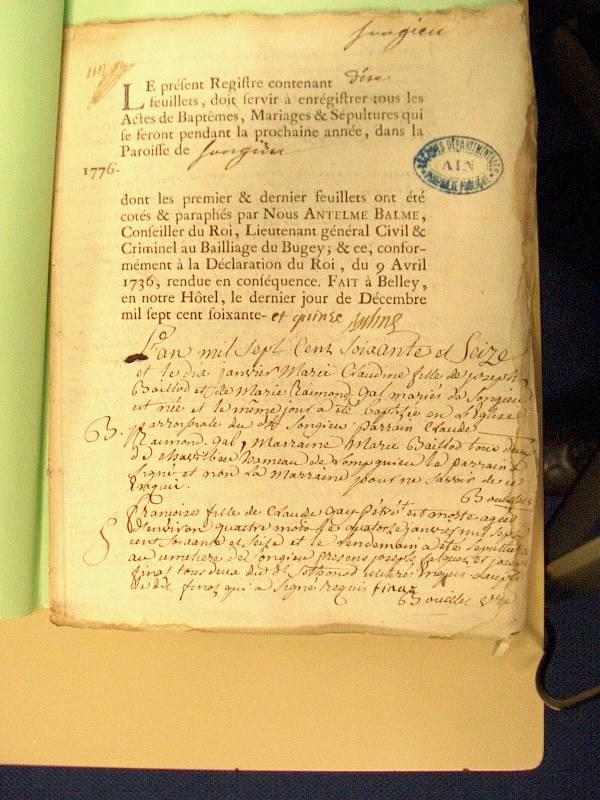 Songieu
LE présent Registre contenant dix
feuillets, doit servir à enrégistrer tous les
Actes de Baptêmes, Mariages & Sépultures qui
se feront pendant la prochaine année, dans la
Paroisse de Songieu
1776.
ARCHIVES DÉPARTEMENTALES
AIN
dont les premier & dernier feuillets ont été
cotés & paraphés par Nous ANTELME BALME,
Conseiller du Roi, Lieutenant général Civil &
Criminel au Bailliage du Bugey; & ce, confor-
mément à la Déclaration du Roi, du 9 Avril
1736, rendue en conséquence. FAIT à Belley,
en notre Hôtel, le dernier jour de Décembre
mil sept cent soixante- et quinze
L'an mil Sept Cent Soixante et Seize
et le dix janvier Marie Claudine fille de joseph
Baillod et de Marie Raimond Gal mariés de Songieu
est née et le même jour a été baptisée en l'église
parroissiale du dt Songieu parrain Claude
B. Raimond Gal, Marraine Marie Baillod tous deux
de hameau de le parrain a
signé et non La Marraine pour ne savoir de ce
requis.
Francoise fille de Claude Gay est morte agée
d'environ quatre mois le quatorze janvier mil sept
S cent soixante et seise et le lendemain a été sepulturée
au cimetiere de Songieu presens joseph et joseph
finaz tous deux du dt
du dit finaz qui a signé requis finaz